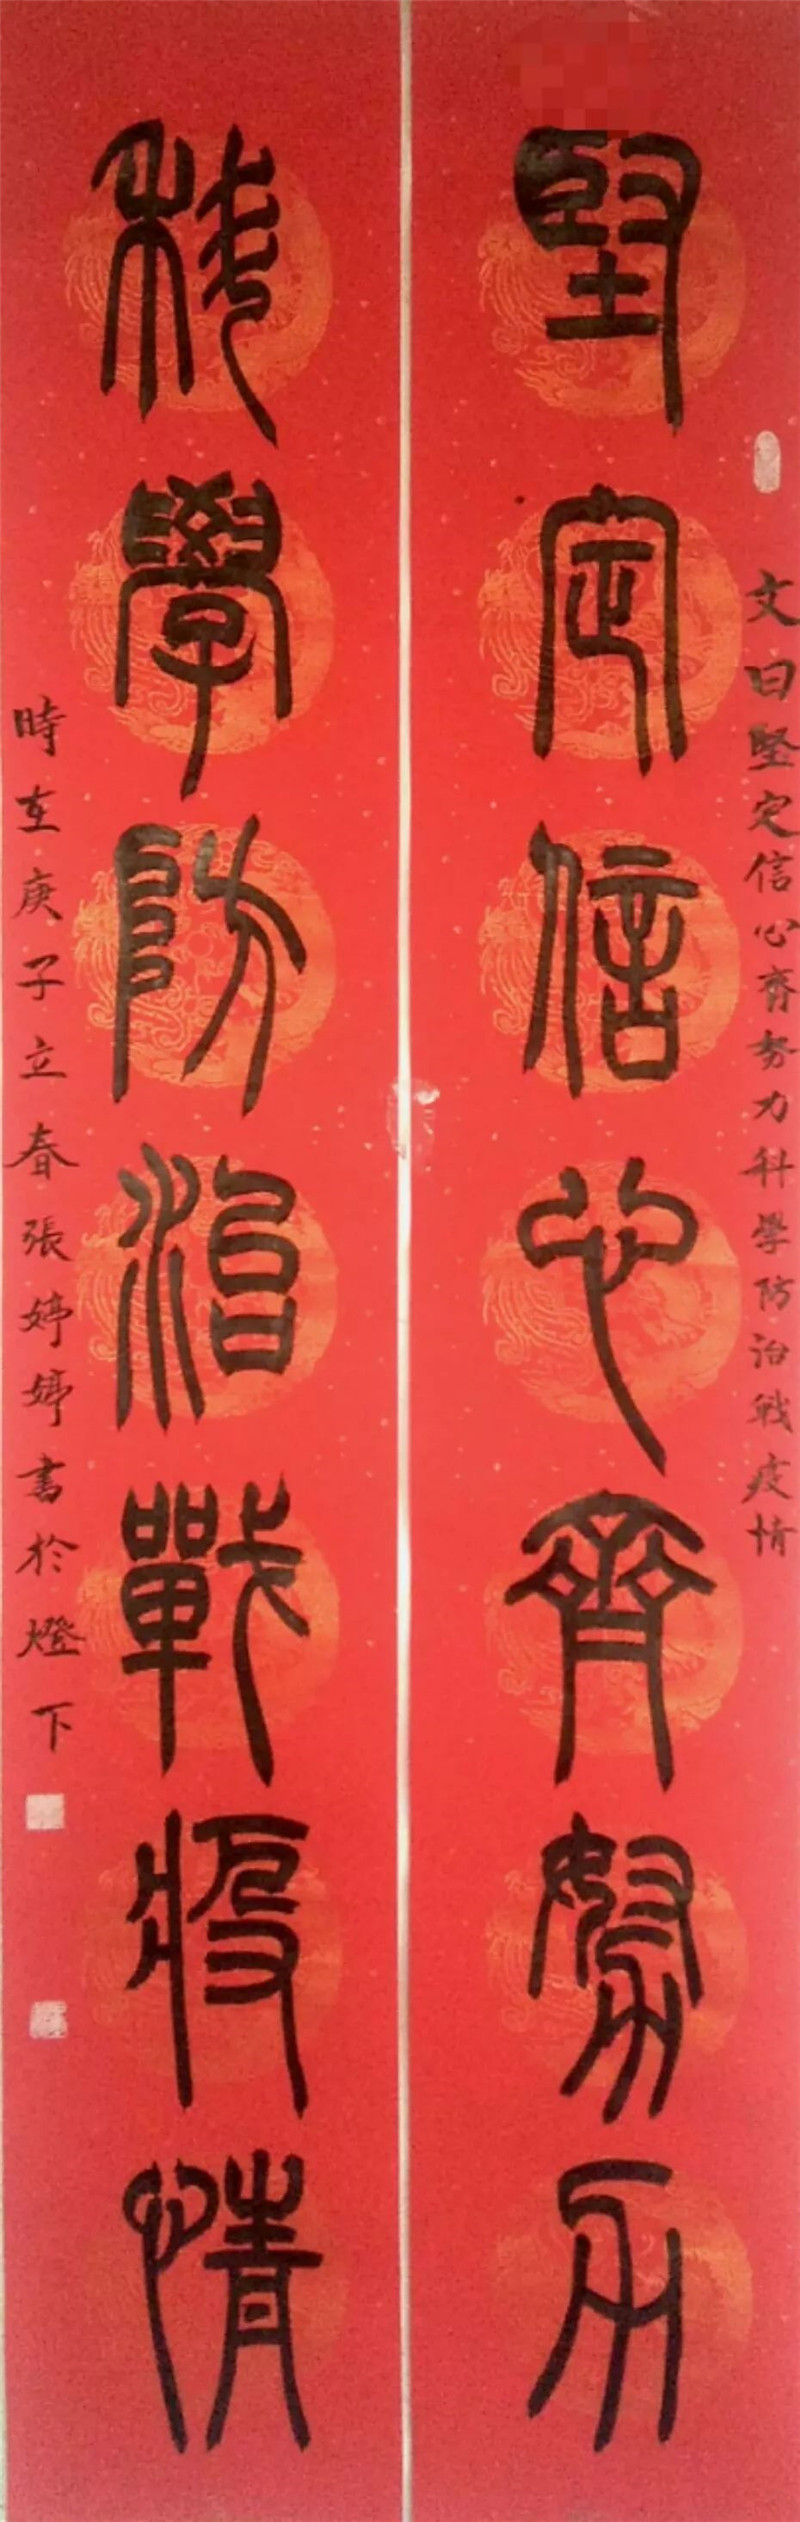 文曰堅定信心齊努力科學防治戰疫情
堅定信心齊努力
科學防治戰疫情
時在庚子立春張婷婷書於燈下